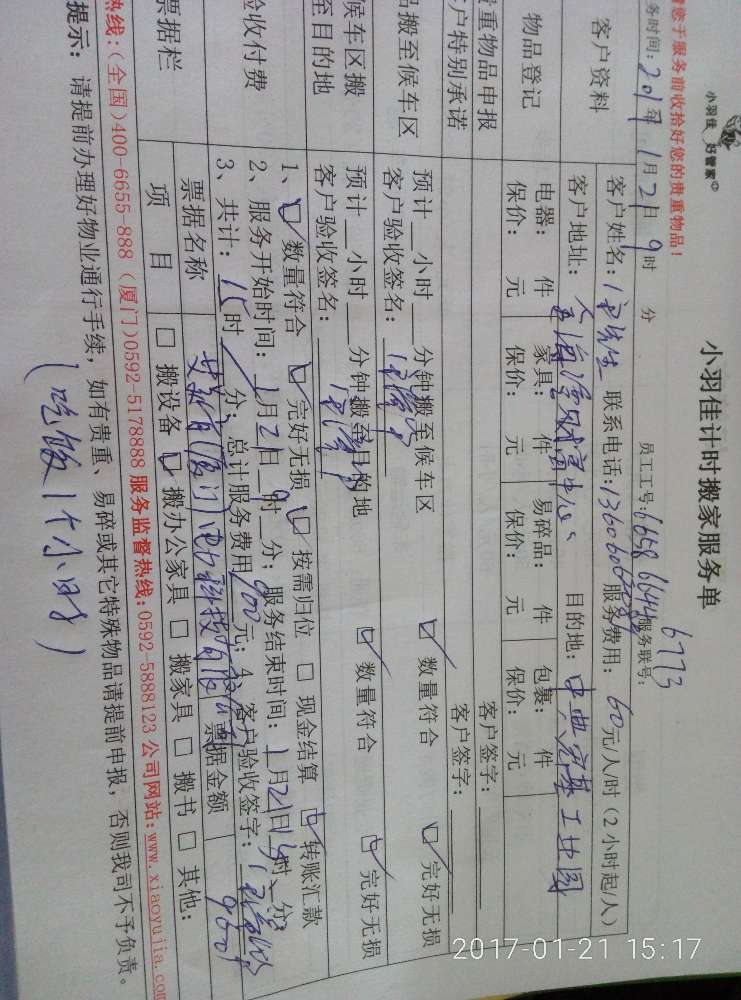 小羽佳 好管家
小羽佳计时搬家服务单
员工工号:6658 6644 6773 服务联号:
您于服务前收拾好您的贵重物品!
务时间:2017年1月21日9时 分
客户资料
客户姓名: 先生 联系电话: 服务费用:60元/人/时(2小时起/人)
客户地址: 财富中心 目的地: 工业园
物品登记
电器: 件 家具: 件 易碎品: 件 包裹: 件
保价: 元 保价: 元 保价: 元 保价: 元
重物品申报 客户签字:
户特别承诺 客户签字:
品搬至候车区
预计 小时 分钟搬至候车区 数量符合 完好无损
客户验收签名:
候车区搬至目的地
预计 小时 分钟搬至目的地 数量符合 完好无损
客户验收签名:
验收付费
1、 数量符合 完好无损 按需归位 现金结算 转账汇款
2、服务开始时间:1月21日9时 分;服务结束时间:1月21日15时 分
3、共计:15时 分;总计服务费用900元;4、客户验收签字:
票据栏
票据名称 (厦门) 科技有限公司 票据金额 900
项 目 搬设备 搬办公家具 搬家具 搬书 其他:
热线:(全国)400-6655-888 (厦门)0592-5178888 服务监督热线:0592-5888123 公司网站:www.xiaoyujia.com
提示: 请提前办理好物业通行手续, 如有贵重、易碎或其它特殊物品请提前申报, 否则我司不予负责。
(吃饭1个小时)
2017-01-21 15:17